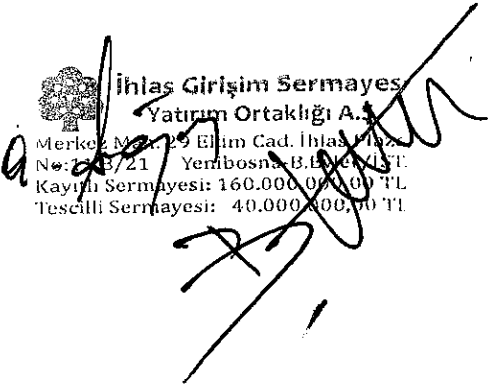 İhlas Girişim Sermayes
Yatırım Ortaklığı A.Ş
Merkez Mah. 29 Ekim Cad. İhlas Plaza
No: Yenibosna-B.Evler/İST.
Kayıtlı Sermayesi: 160.000.000,00 TL
Tescilli Sermayesi: 40.000.000,00 TL